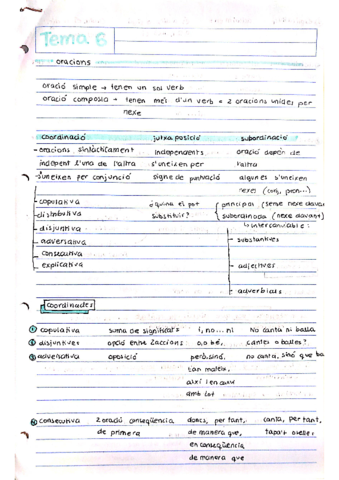 Tema 6
oracions
oració simple → tenen un sol verb
oració composta → tenen més d'un verb = 2 oracions unides per
nexe
coordinació juxtaposició subordinació
- oracions sintàcticament independents oració depén de
independent l'una de l'altra s'uneixen per l'altra
s'uneixen per conjunció signe de puntuació algunes s'uneixen
nexes (conj, pron...)
- copulativa ¿quina el pot principal (sense nexe davant)
- distributiva substituir? subordinada (nexe davant)
- disjuntiva ↳ intercanviable:
- adversativa - substantives
- consecutiva
- explicativa - adjectives
- adverbials
coordinades
① copulativa suma de significats i, no... ni No canta ni balla
② disjuntives opció entre 2 accions o, o bé, cantes o balles?
③ adversativa oposició però, sinó, no canta, sinó que ba
tan mateix,
així i en canvi
amb tot
④ consecutiva 2 oració conseqüència doncs, per tant, canta, per tant,
de primera de manera que,
en conseqüència
de manera que